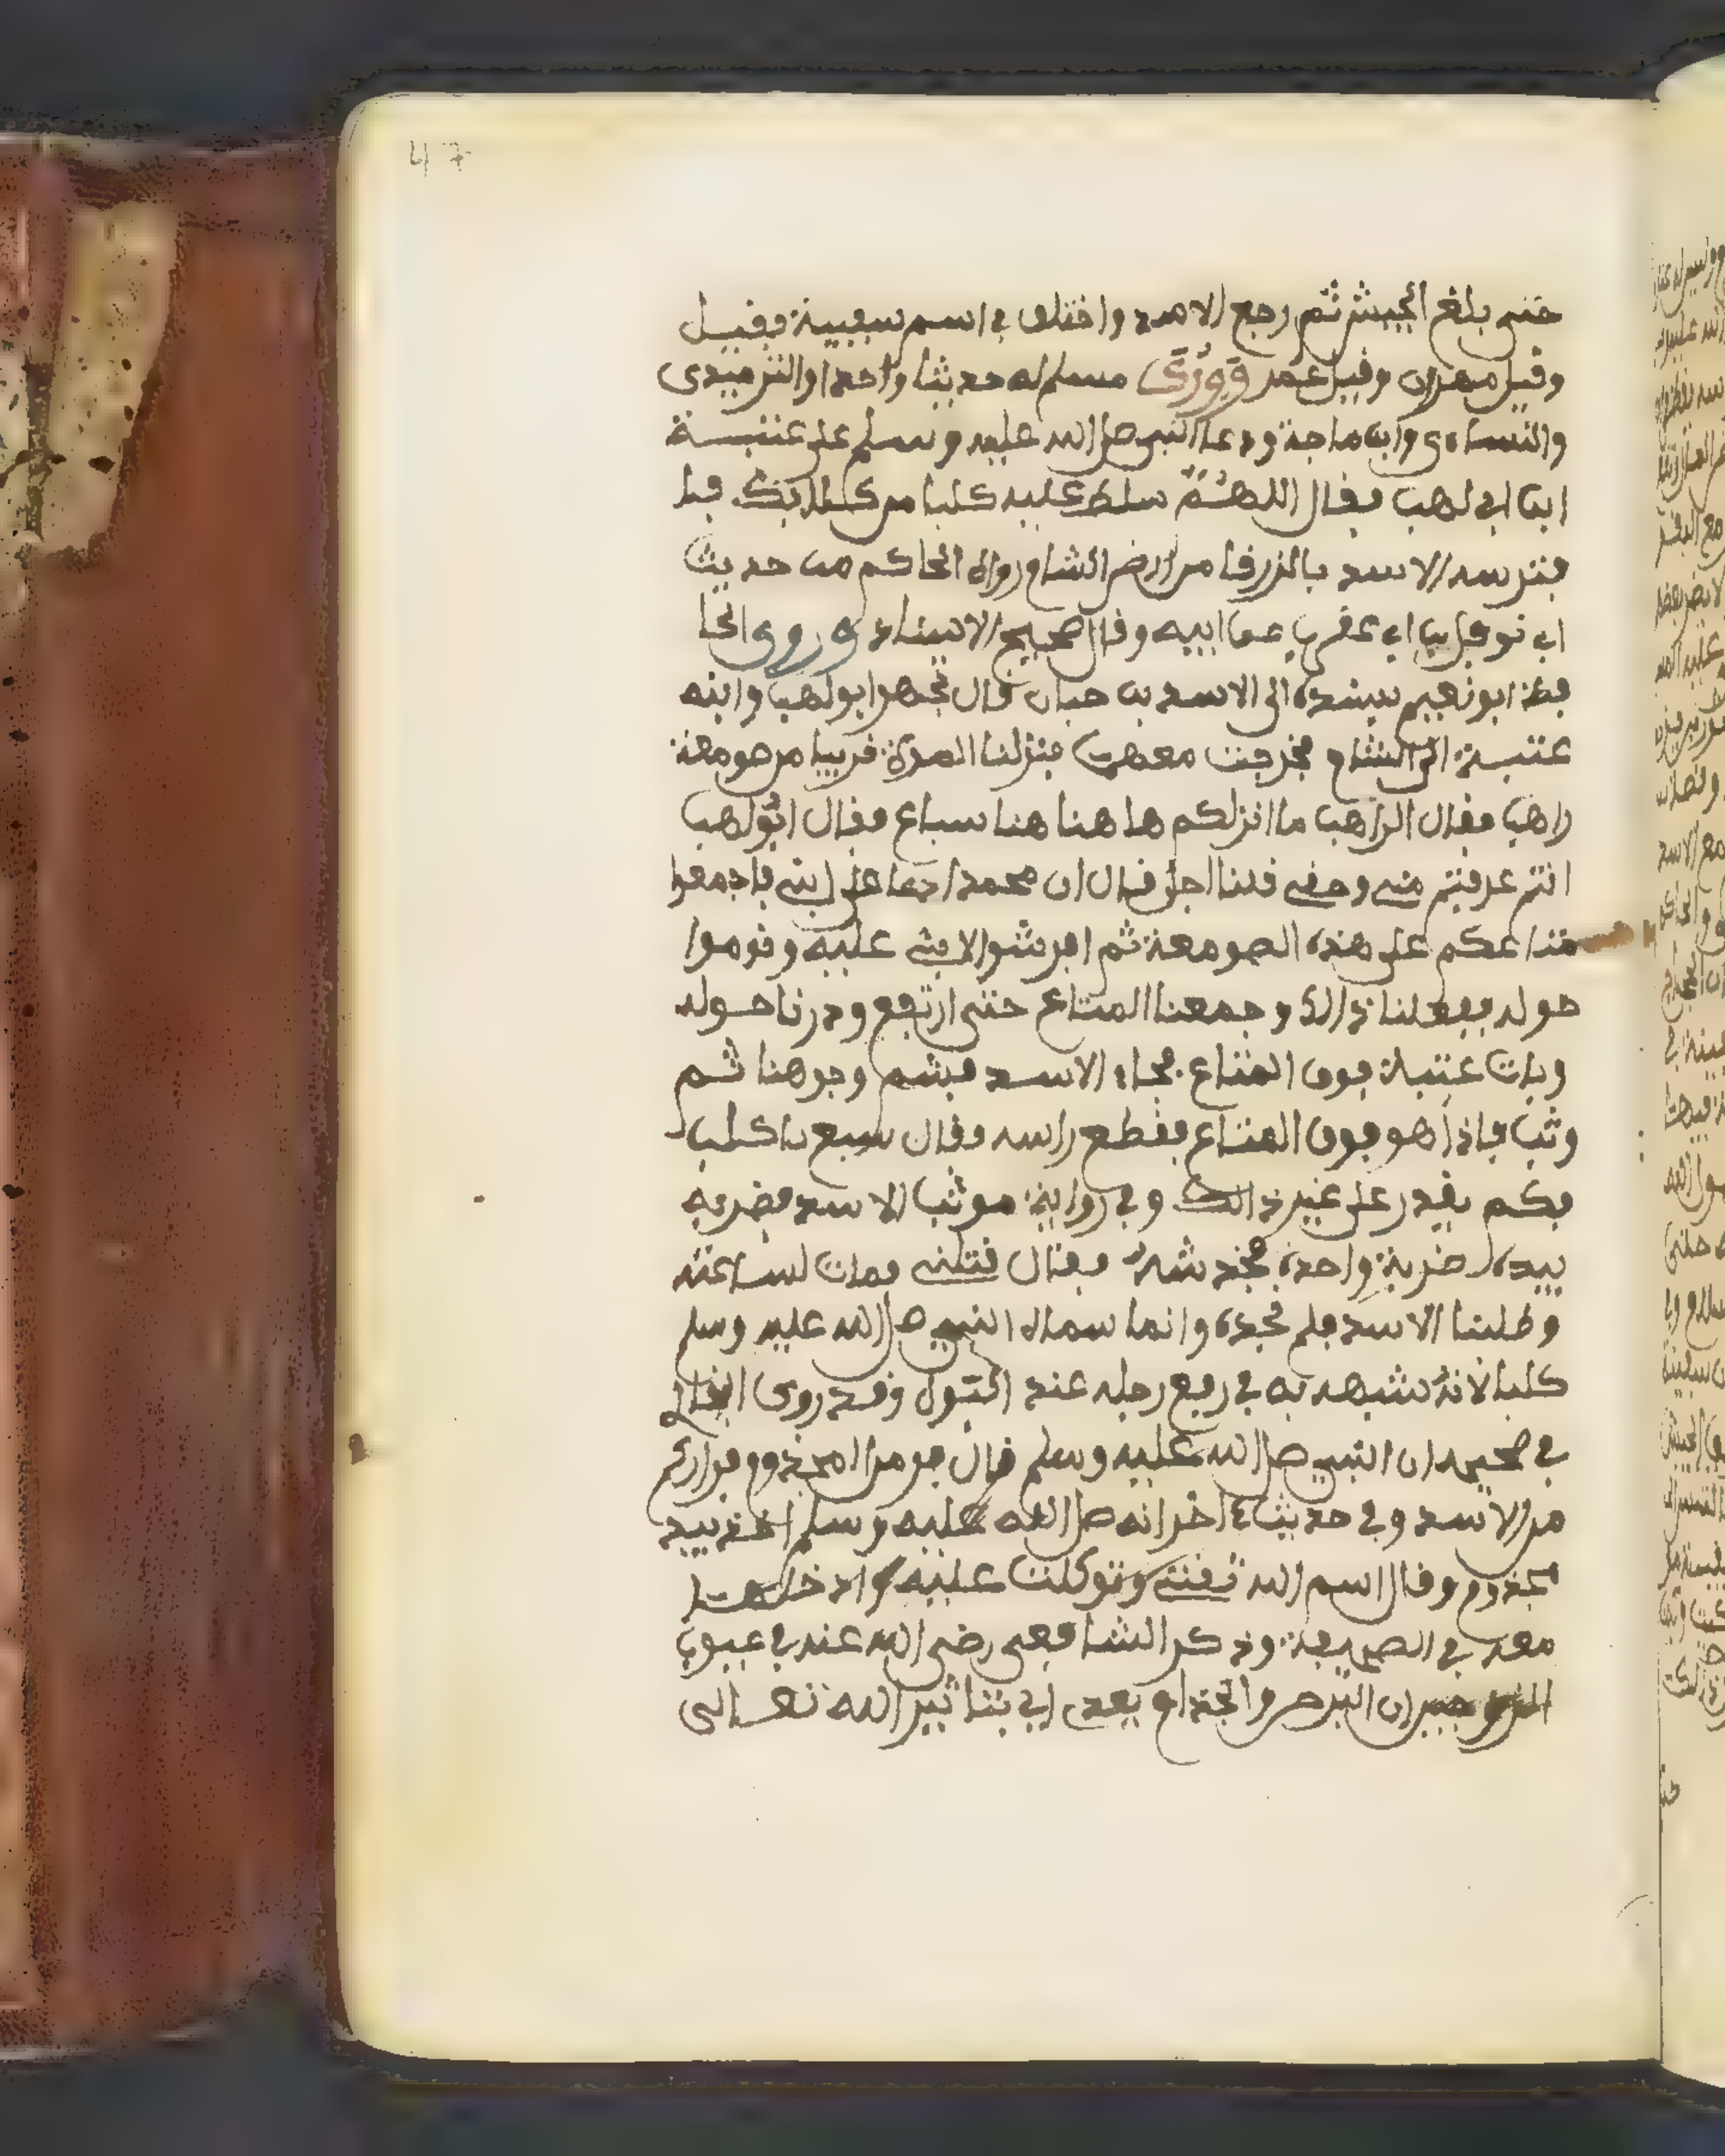 47
حتى بلغ الجيش ثم رجع الاسد واختلف في اسم سفينة فقيل
وقيل مهران وقيل عمر وروى مسلم له حديثا واحدا والترميدى
والنساءى وابن ماجة ودعا النبي صل الله عليه وسلم على عتبـة
ابن ابي لهب فقال اللهم سلط عليه كلبا من كلابك فا
فترسه الاسد بالزرفا من ارض الشام رواه الحاكم من حديث
ابي نوفل بن ابي عقرب عن ابيه وقال صحيح الاسناد وروى الحا
فظ ابو نعيم بسنده الى الاسود بن حبار قال تجهز ابو لهب وابنه
عتبة الى الشام فخرجت معهما فنزلنا السراة قريبا من صومعة
راهب فقال الراهب ما انزلكم ها هنا هنا سباع فقال ابو لهب
انتم عرفتم سنى وحقى قلنا اجل قال ان محمدا دعا على ابنى فاجمعوا
متاعكم على هذه الصومعة ثم افرشوا لابنى عليه وقوموا
حوله ففعلنا ذالك وجمعنا المتاع حتى ارتفع ودرنا حوله
وبات عتبة فوق المتاع فجاء الاسد فشم وجوهنا ثم
وثب فاذا هو فوق المتاع فقطع راسه فقال سيع ياكلب
فكم يقدر على غير ذالك وفي رواية فوثب الاسد فضربه
بيده ضربة واحدة فخدشه فقال قتلنى فمات لساعته
وطلبنا الاسد فلم نجده وانما سماه النبي صل الله عليه وسلم
كلبا لانه شبهه به في رفع رجله عند البول وقد روى البخاري
في صحيحه ان النبي صل الله عليه وسلم قال فر من المجذوم فرارك
من الاسد وفي حديث اخر انه صل الله عليه وسلم اخذ بيد
مجذوم وقال اسم الله ثقتى وتوكلت عليه وادخلها
معه في الصحيفة وذكر الشافعى رضى الله عنه في عيوب
الزوجين ان البرص والجذام يعدى اي بتاثير الله تعالى